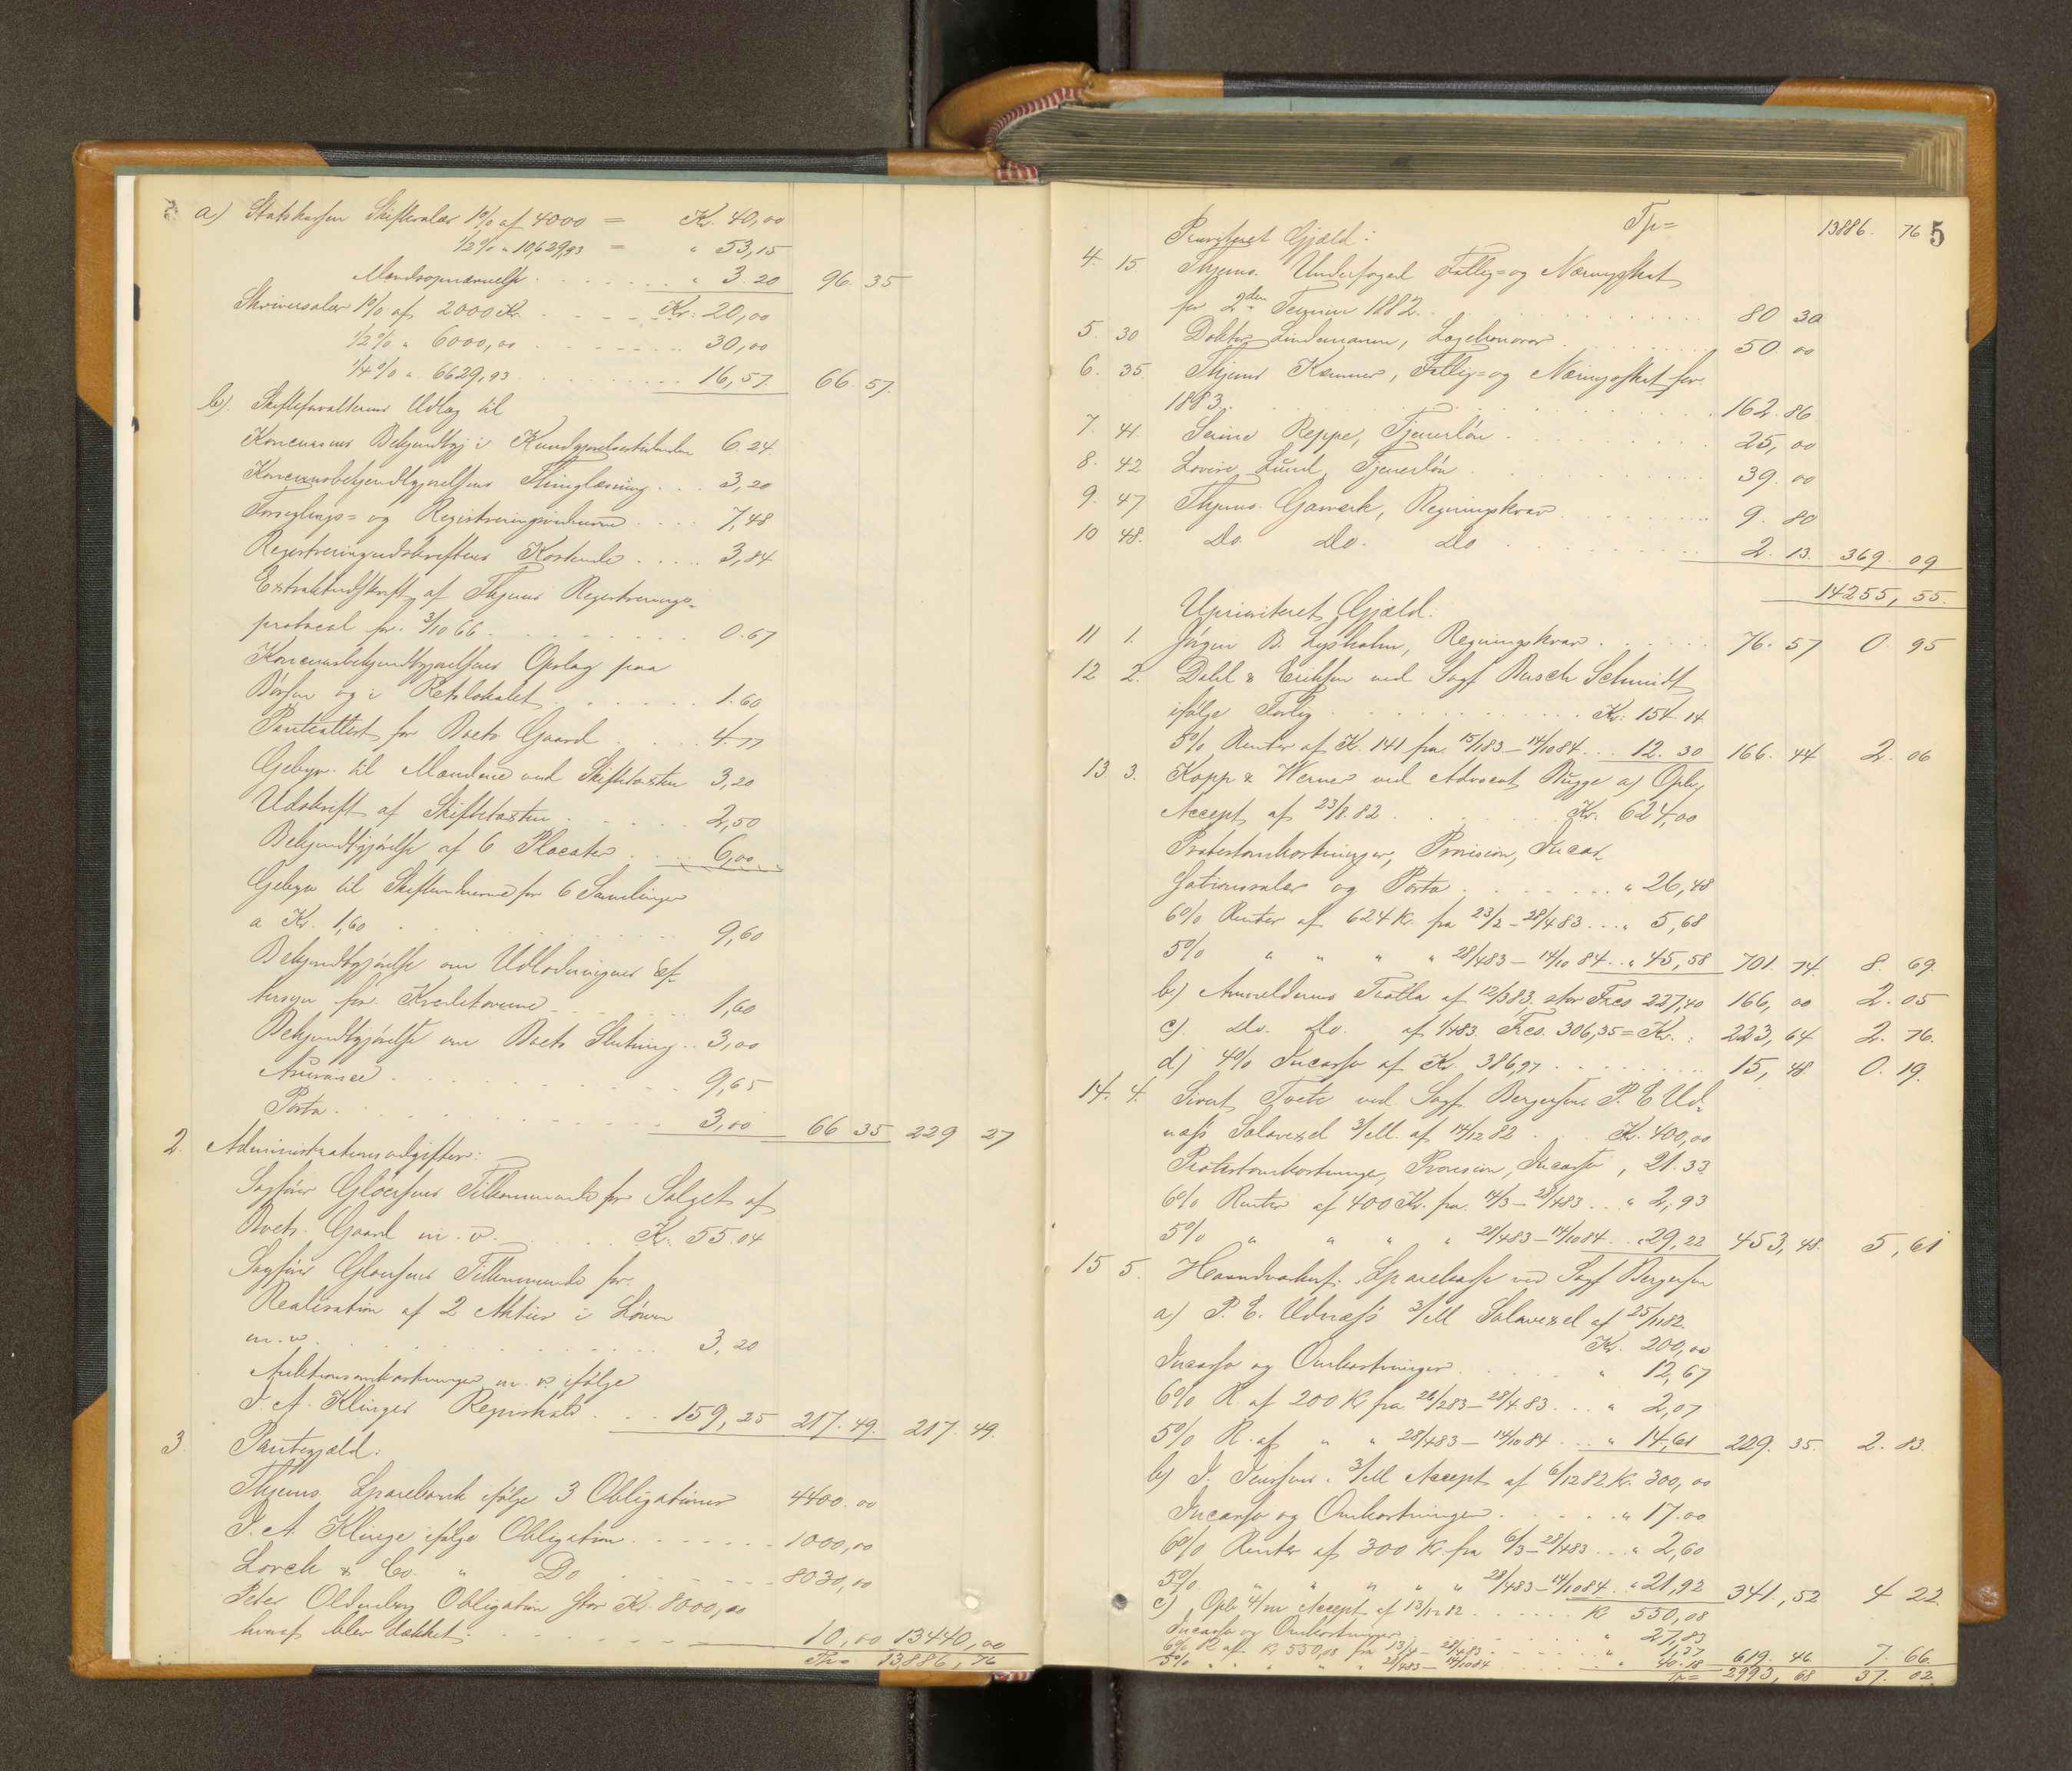 a) Statskassen Skiftesalær 1% af 4000 = Kr. 40,00
1/2% " 10,629,93 = " 53,15
Mændsopnævnelse " 3.20 96. 35
Skriversalær 1% af 2000 Kr. Kr: 20,00
1/2% " 6000,00 30,00
1/4% " 6629,93 16,57 66. 57.
b). Skifteforvalterens Udlæg til
Koncursens Bekjendtgj. i Kundgjørelsestidenden 6.24.
Koncursbekjendtgjørelsens Thinglæsning 3,20
Forseglings= og Registreringsvidnerne 7,48
Registreringsudskriftens Kostende 3,84
Extraktudskrift af Thjems Registrerings-
protocol for 3/10 66 0.67
Koncursbekjendtgjørelsens Opslag paa
Børsen og i Retslokalet 1.60
Panteattest for Boets Gaard 4.77
Gebyr til Mændene ved Skiftetaxten 3,20
Udskrift af Skiftetaxten 2,50
Bekjendtgjørelse af 6 Placater 6,00
Gebyr til Skiftevidnerne for 6 Samlinger
a Kr. 1,60 9,60
Bekjendtgjørelse om Udlodningens Ef-
tersyn for Kreditorerne 1,60
Bekjendtgjørelse om Boets Slutning 3,00
Assurance 9,65
Porto 3,00 66 35 229 27
2. Administrationsudgifter:
Sagfører Gløersens Tilkommende for Salget af
Boets Gaard m.v. Kr. 55.04
Sagfører Gløersens Tilkommende for
Realisation af 2 Aktier i Løven
m.v. 3,20
Auktionsomkostninger m.v. ifølge
J. A. Klinges Regnskab 159,25 217.49. 217.49.
3 Pantegjæld:
Thjems Sparebank ifølge 3 Obligationer 4400.00
J. A. Klinge ifølge Obligation 1000,00
Lorck & Co. " Do 8030,00
Peter Oldenborg Obligation stor Kr. 8000,00
hvoraf blev dækket: 10,00 13440,00
Tp= 13,886,76
5
Tp= 13886. 76
Prioriteret Gjæld:
4. 15 Thjems Underfoged Fattig= og Næringsskat
for 2den Termin 1882 80 30
5 30 Doktor Lindemann, Lægehonorar 50.00
6. 35. Thjems Kæmner, Fattig= og Næringsskat for
1883. 162.86
7. 41. Serine Reppe, Tjenerløn 25,00
8. 42 Lovise Lund, Tjenerløn 39.00
9. 47 Thjems Gasværk, Regningskrav 9.80
10 48. Do. Do. Do 2.13. 369.09
14255,55.
Uprioriteret Gjæld.
11 1. Jørgen B. Lysholm, Regningskrav 76.57 0.95
12 2. Dahl & Eriksen ved Sagf Busch Schmidt
ifølge Forlig Kr: 154.14
5% Renter af K. 141 fra 15/1 83 – 14/10 84 12.30 166.44 2.06
13. 3. Kopp & Werner ved Advocat Bugge a) Opb.
Accept af 23/8.82 Kr. 624,00
Protestomkostninger, Provision, Incas-
sationssalær og Porto " 26,48
6% Renter af 624 Kr. fra 23/2 – 28/4 83 " 5,68
5% " " " " 28/4 83 – 14/10 84 " 45,58 701.74. 8.69.
b) Anmelderens Tratta af 12/3 83. stor Frcs 227,40 166,00 2.05
c). Do. Do. af 1/4 83. Frcs. 306,35 = Kr.: 223,64 2.76.
d) 4% Incasso af Kr. 386,97 15,48 0.19.
14. 4. Sivert Tvete ved Sagf. Bergersen P. E Ud-
næss Solavexel 3/M. af 14/12 82 K. 400,00
Protestomkostninger, Provision, Incasso, 21.33
6% Renter af 400 Kr. fra 14/3 – 28/4 83 " 2,93
5% " " " " 28/4 83 – 14/10 84 " 29,22 453,48. 5,61
15 5. Haandværkerf. Sparekasse ved Sagf Bergersen
a) P. E. Udnæss 3/M Solavexel af 25/11 82
Kr. 200,00
Incasso og Omkostninger " 12,67
6% R. af 200 Kr fra 26/2 83 – 28/4 83 " 2,07
5% R. af " " 28/4 83 – 14/10 84 " 14,61 229.35. 2.83.
b) J. Jenssens 3/M Accept af 6/12 82 Kr. 300,00
Incasso og Omkostninger " 17.00
6% Renter af 300 Kr. fra 6/3 – 28/4 83 " 2,60
5% " " " " " 28/4 83 – 14/10 84 " 21,92 341.,52 4 22
c) Opb. 4/m Accept af 13/12 82 K 550,08
Incasso og Omkostninger " 27,83
6% R af Kr 550,08 fra 13/4 – 28/4 83 " 1,37
5% " " " " 28/4 83 – 14/10 84 " 40.18 619.46 7.66
Tp= 2993,68 37.02.